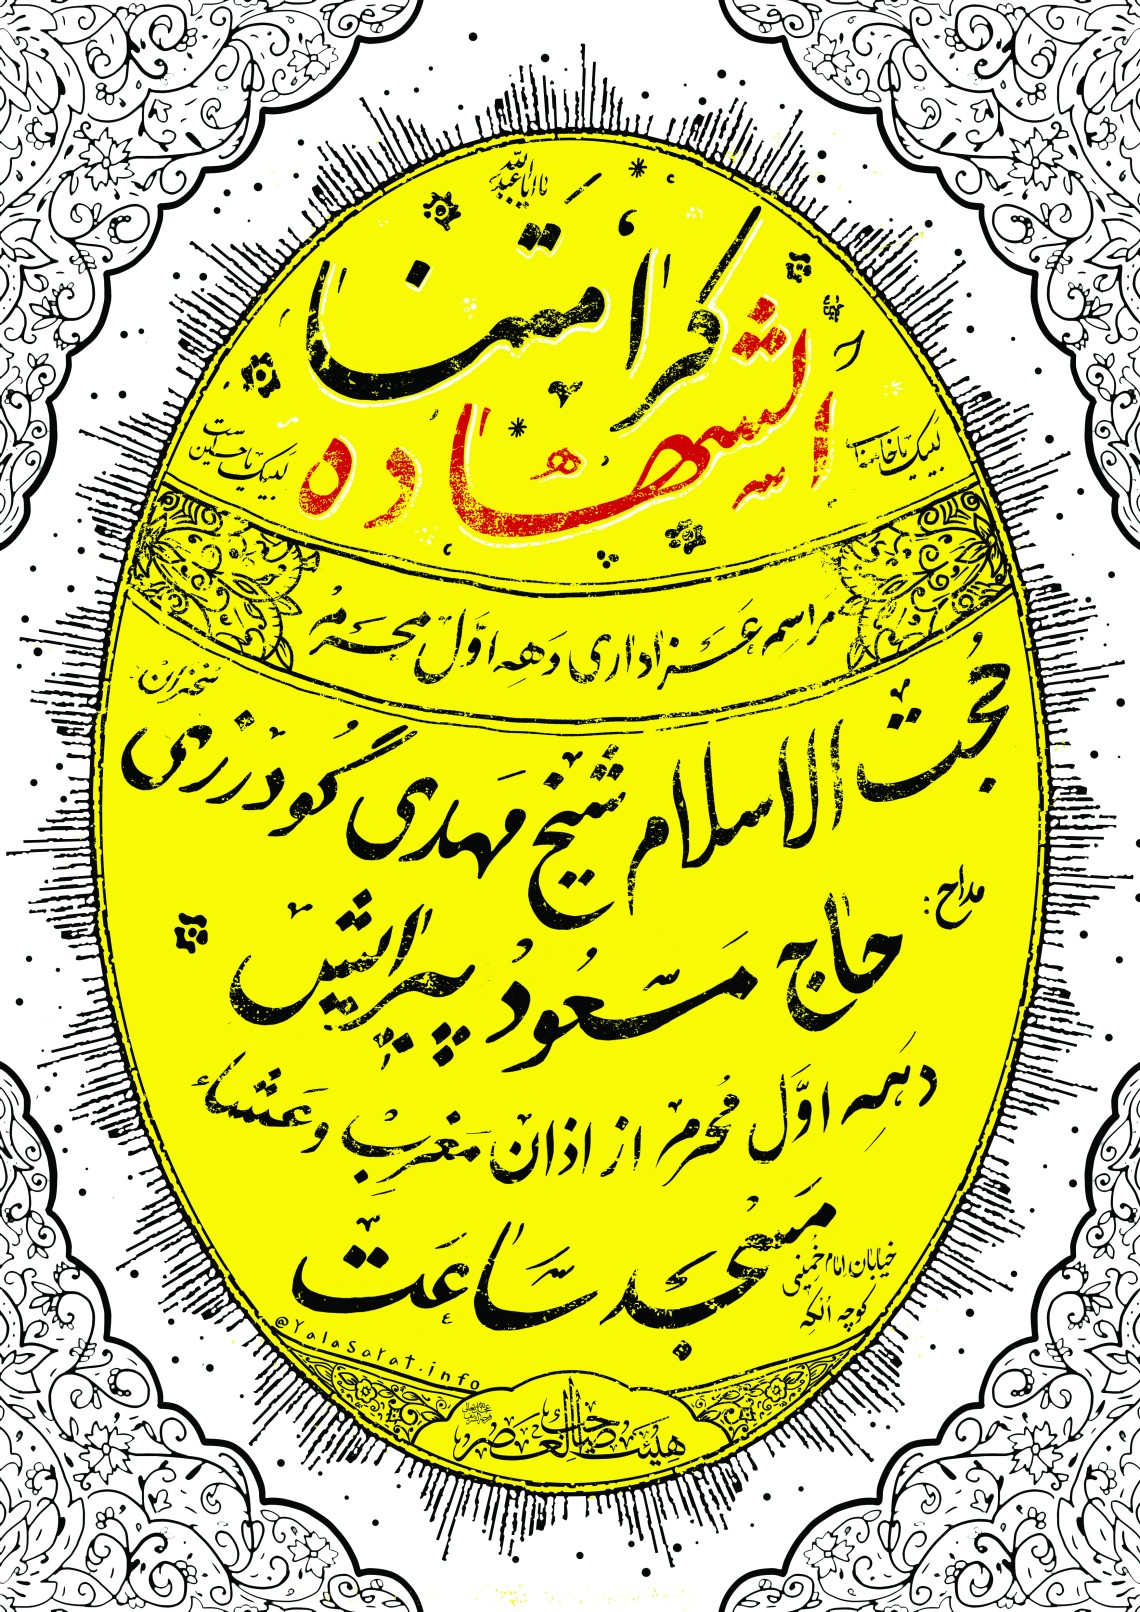 یا اباعبدالله
کرامتنا
الشهادة
لبیک یا خامنه‌ای
لبیک یا حسین است
مراسم عزاداری دهه اوّل محرم
سخنران:
حُجت الاسلام شیخ مَهدی گودرزی
مداح:
حاج مسعُود پیرایش
دهه اوَّل مُحرم از اذان مغربْ وعَشاء
مَسجد ساعَت
خیابان امام خمینی
کوچه اُلنگه
@Yalasarat.info
هیئت صاحب العصر